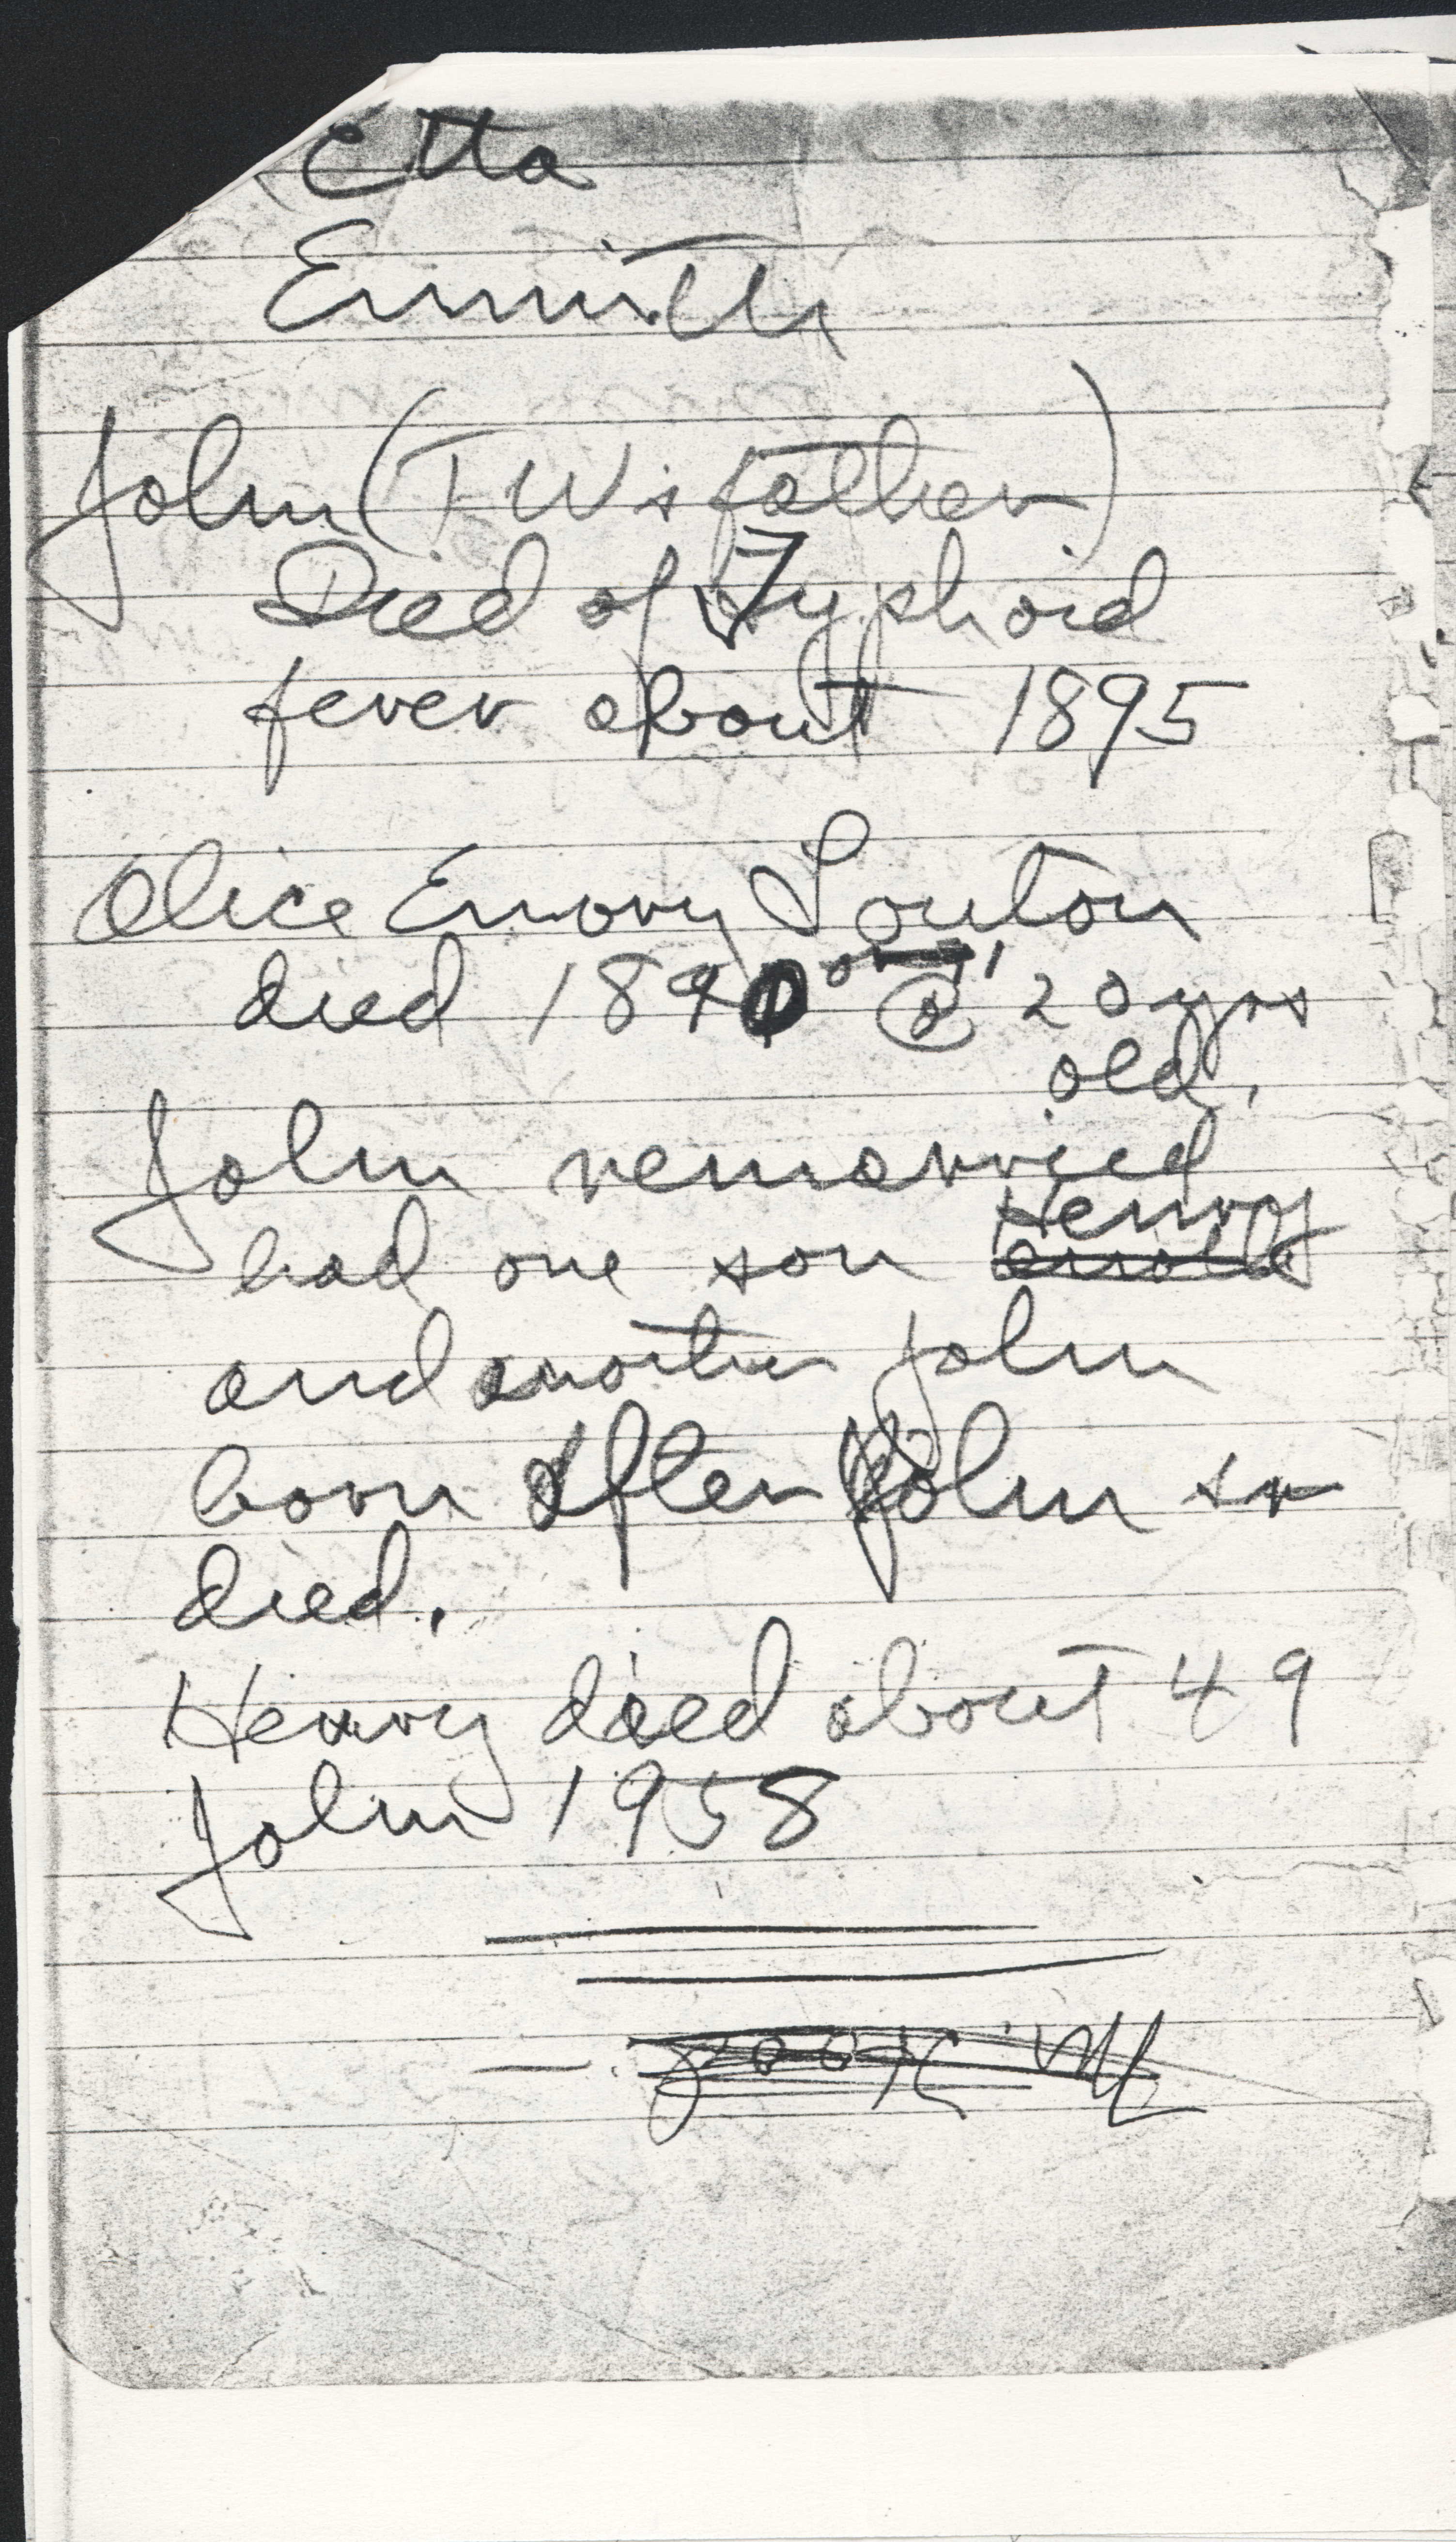 Etta
Emmitt
John (TW's father)
Died of Typhoid
fever about 1895
Alice Emory Louton
died 1890 or 91 @ 20 yrs
old.
John remarried
Henry
had one son
and another John
born after John sr
died.
Henry died about 49
John 1958